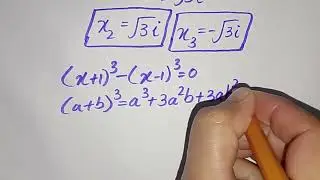 x₂ = √3i
x₃ = -√3i
(x+1)³-(x-1)³=0
(a+b)³=a³+3a²b+3ab²